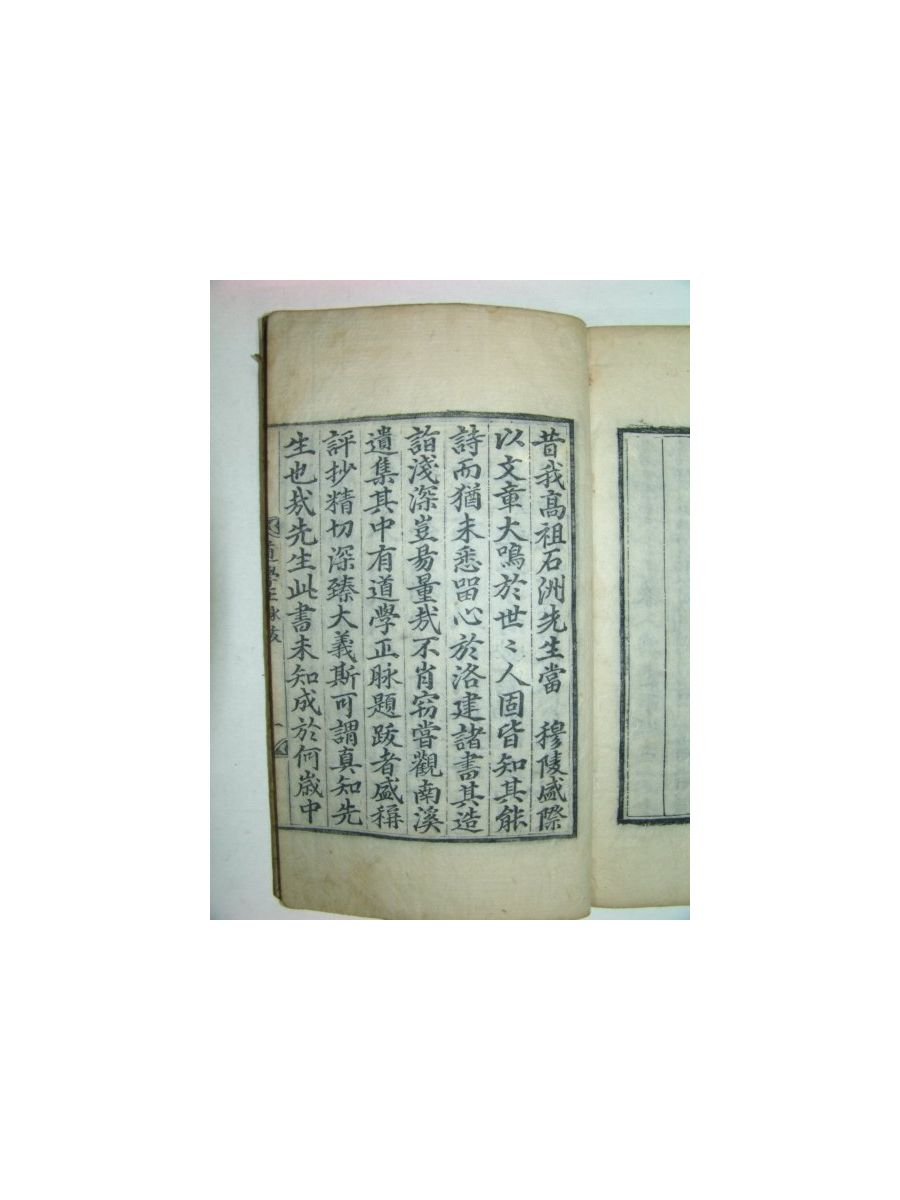 昔我高祖石洲先生當　穆陵盛際
以文章大鳴於世〻人固皆知其能
詩而猶未悉留心於洛建諸書其造
詣淺深豈易量㦲不肖窃嘗觀南溪
遺集其中有道學正脉題跋者盛稱
評抄精切深臻大義斯可謂真知先
生也㦲先生此書未知成於何歲中
道學正脉跋
一